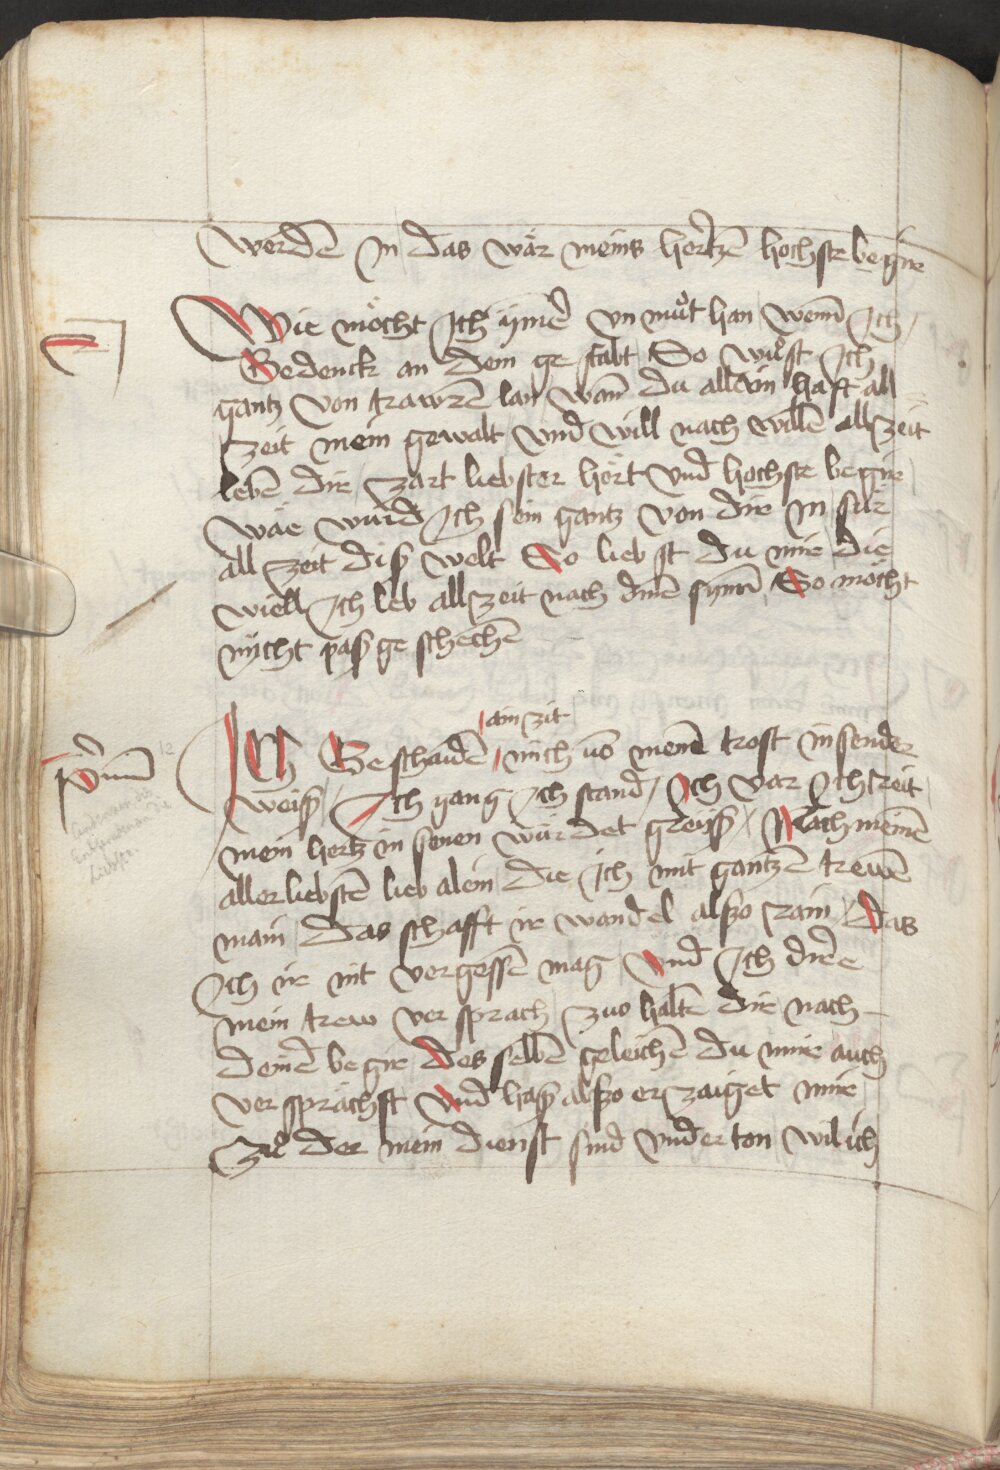 werdē In das wär meins hertzē hochste begir
Wie möcht Ich ymē un muͦt han wenn̄ Ich
Gedenck an dein ge stalt So muͦst Ich
gantz von trawrē lan wan̄ du allain hast all
zeit mein gewalt und will nach willē all zeit
lebē dir zart liebster hort und hochste begir
wäe würd Ich sein gantz von dir In
all zeit diß welt So lieb st du mir die
wiell Ich leb all zeit nach dinē synn̄ So möcht
nÿcht paß ge schechē
ain zit
Ich Geschaidē mich vō menē trost in sender
weiß Ich gang Ich stand Ich var Ich reit
mein hertz in senen würdet greyß Nach meinē
aller liebstē lieb alein die Ich mit gantzē trewē
main das schafft ir wandel alßo rain das
Ich ir nit vergessē mag und Ich dir
mein trew ver sprach zuo haltē dir nach
deinē begir des selbē geleichē du mir auch
ver sprächst und haß alßo er zaiget mir
Zuͦ der mein dienst sind under ton wil ich